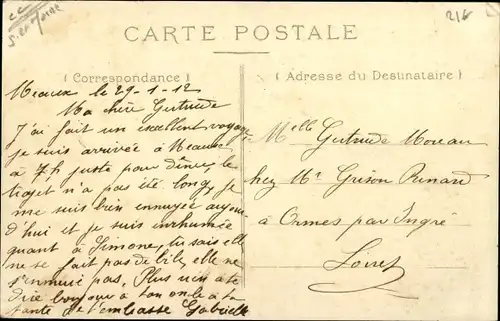 S. et Marne
216
CARTE POSTALE
(Correspondance)
(Adresse du Destinataire)
Meaux le 29-1-12
Ma chère Gertrude
J'ai fait un excellent voyage
je suis arrivée à Meaux
à 7h juste pour dîner, le
trajet n'a pas été long, je
me suis bien ennuyée aujour
d'hui et je suis enrhumée
quant à Simone, tu sais elle
ne se fait pas de bile, elle ne
s'ennuie pas. Plus rien à te
dire bonjour à ton oncle à ta
tante je t'embrasse Gabrielle
Melle Gertrude Moreau
chez Mr Grison Renard
à Ormes par Ingré
Loiret